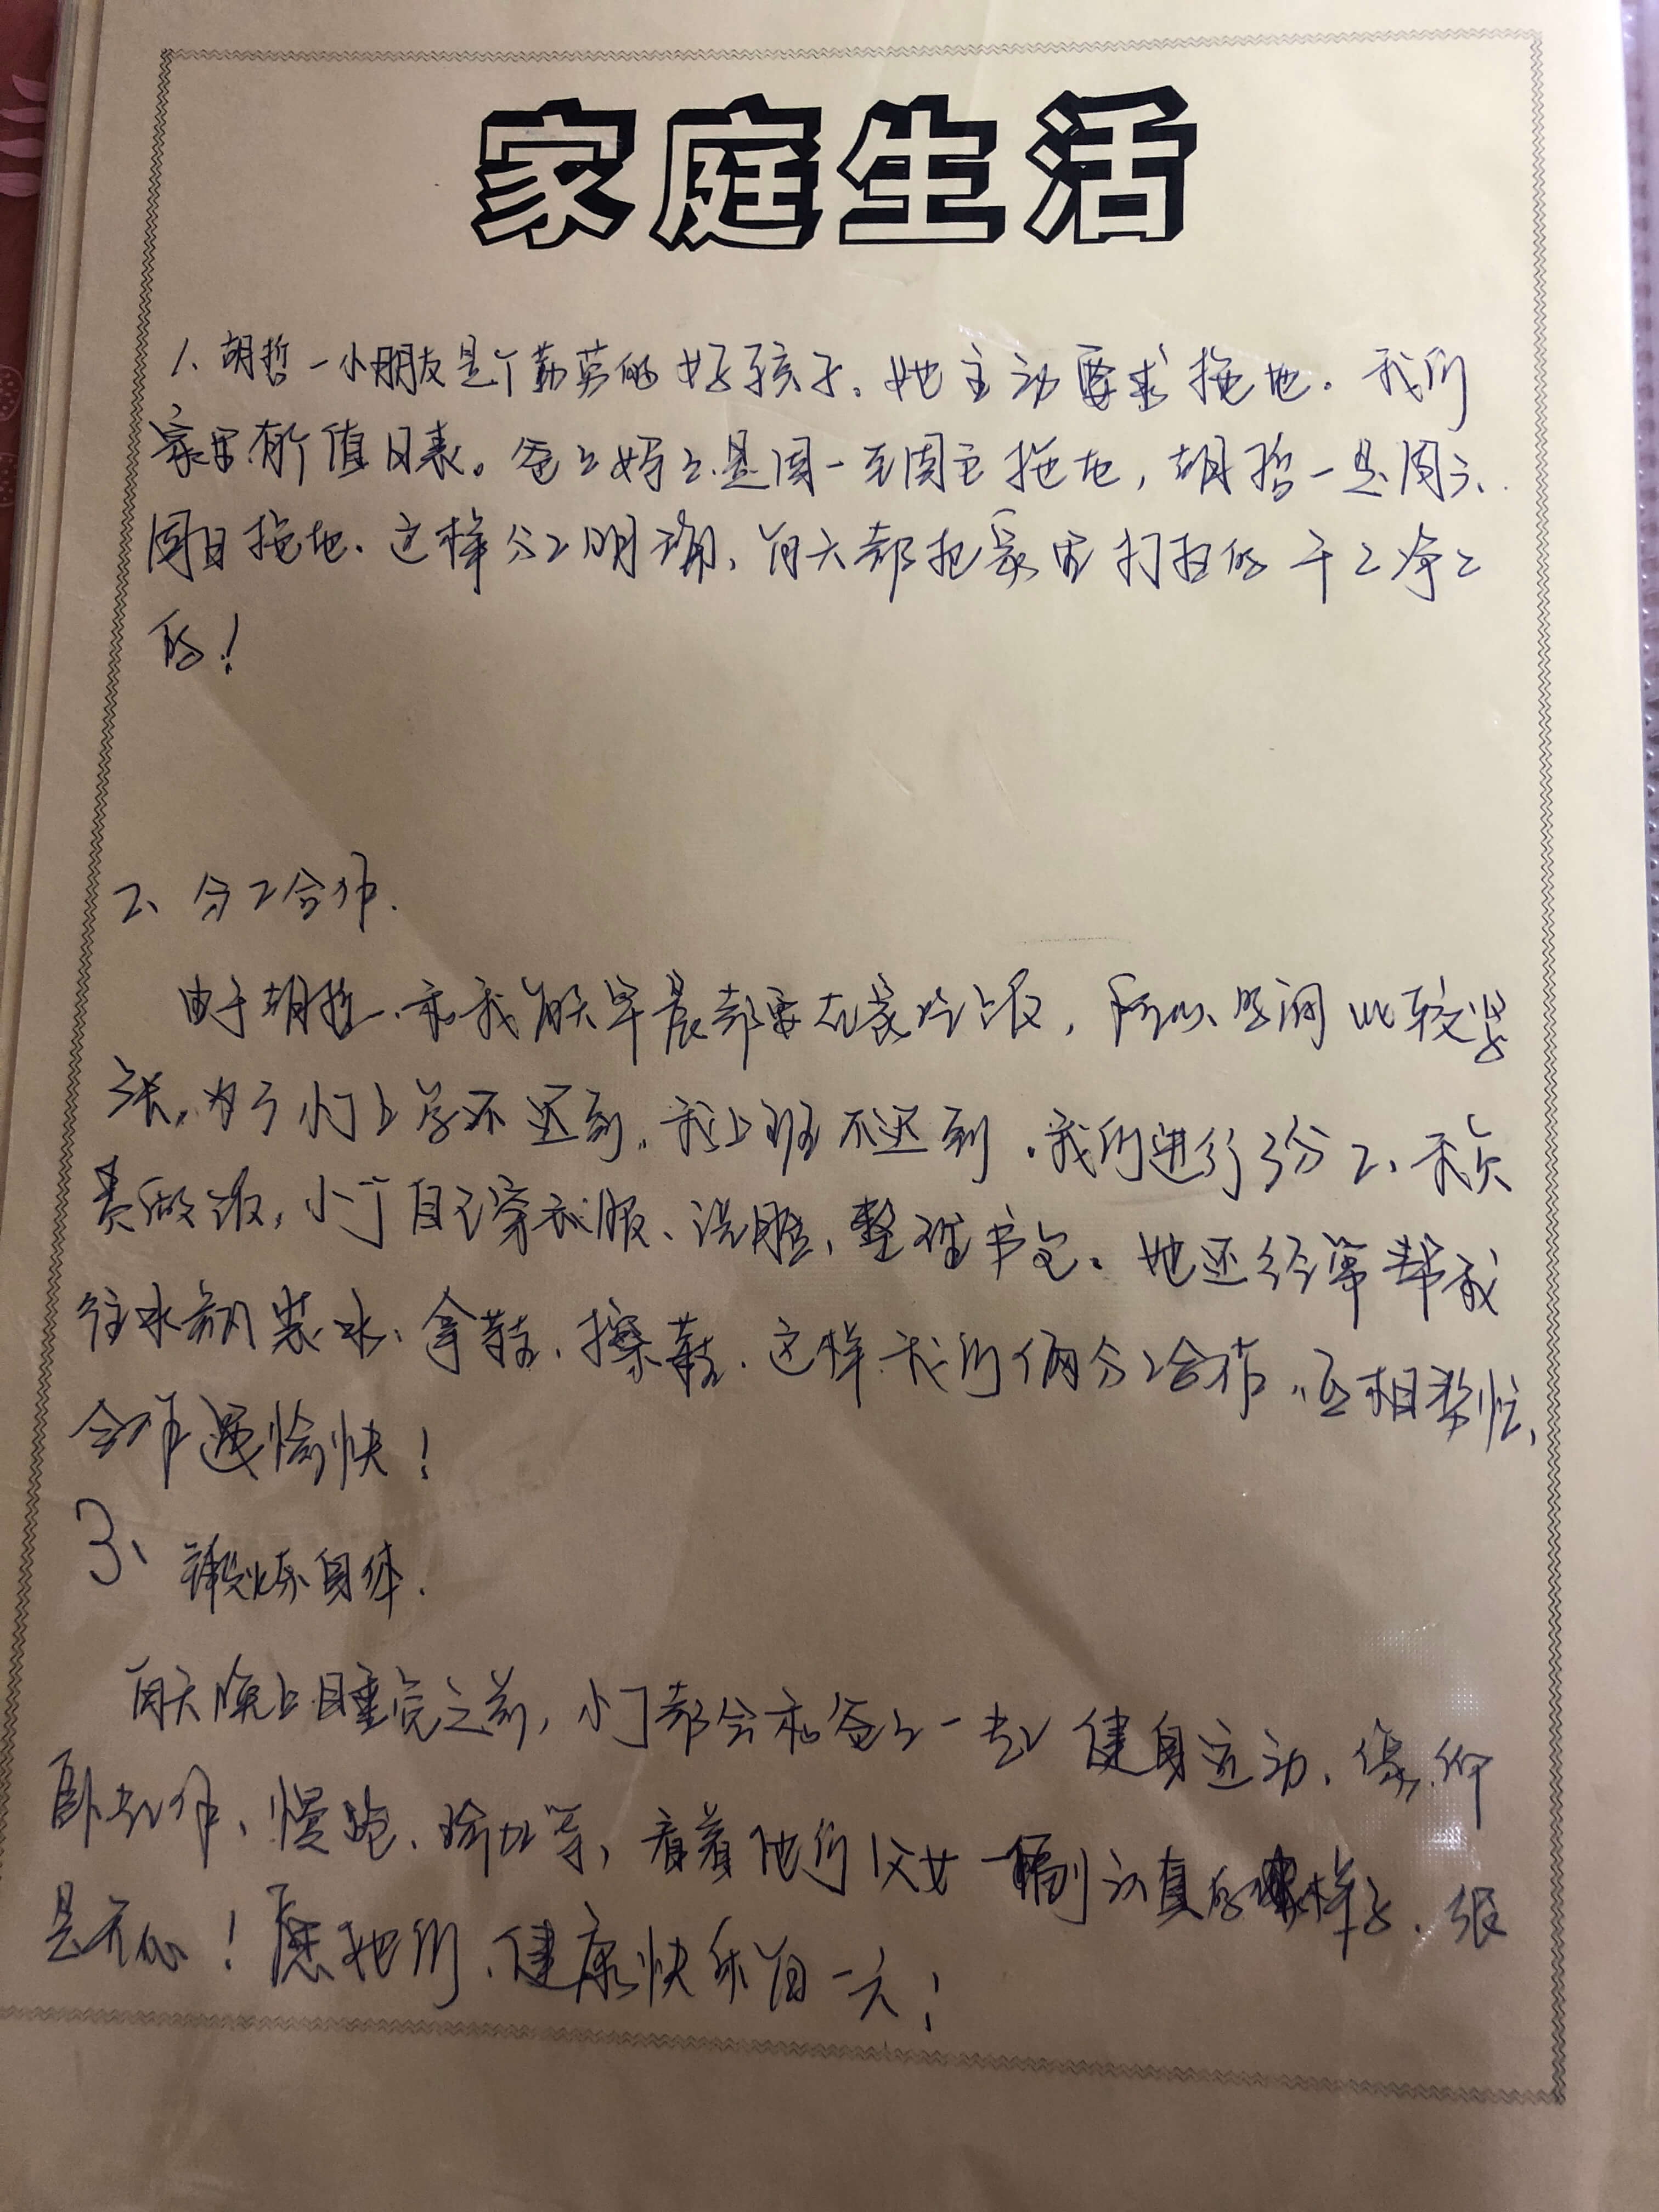 家庭生活
1、胡哲一小朋友是个勤劳的好孩子。她主动要求拖地。我们
家里有个值日表。爸爸妈妈是周一至周五拖地，胡哲一是周六、
周日拖地。这样分工明确，每天都把家里打扫的干干净净
的！
2、分工合作.
由于胡哲一和我每天早晨都要在家吃饭，所以时间比较紧
张。为了小丁上学不迟到。我上班不迟到。我们进行了分工、我负
责做饭，小丁自己穿衣服、洗脸，整理书包。她还经常帮我
往水瓶装水、拿鞋、擦鞋.这样我们俩分工合作，互相帮忙、
合作愉快！
3、锻炼身体.
每天晚上睡觉之前，小丁都会和爸爸一起健身运动、像仰
卧起坐、慢跑、瑜伽等，看着他们父女一副认真的样子，很
是开心！愿他们、健康快乐每一天！